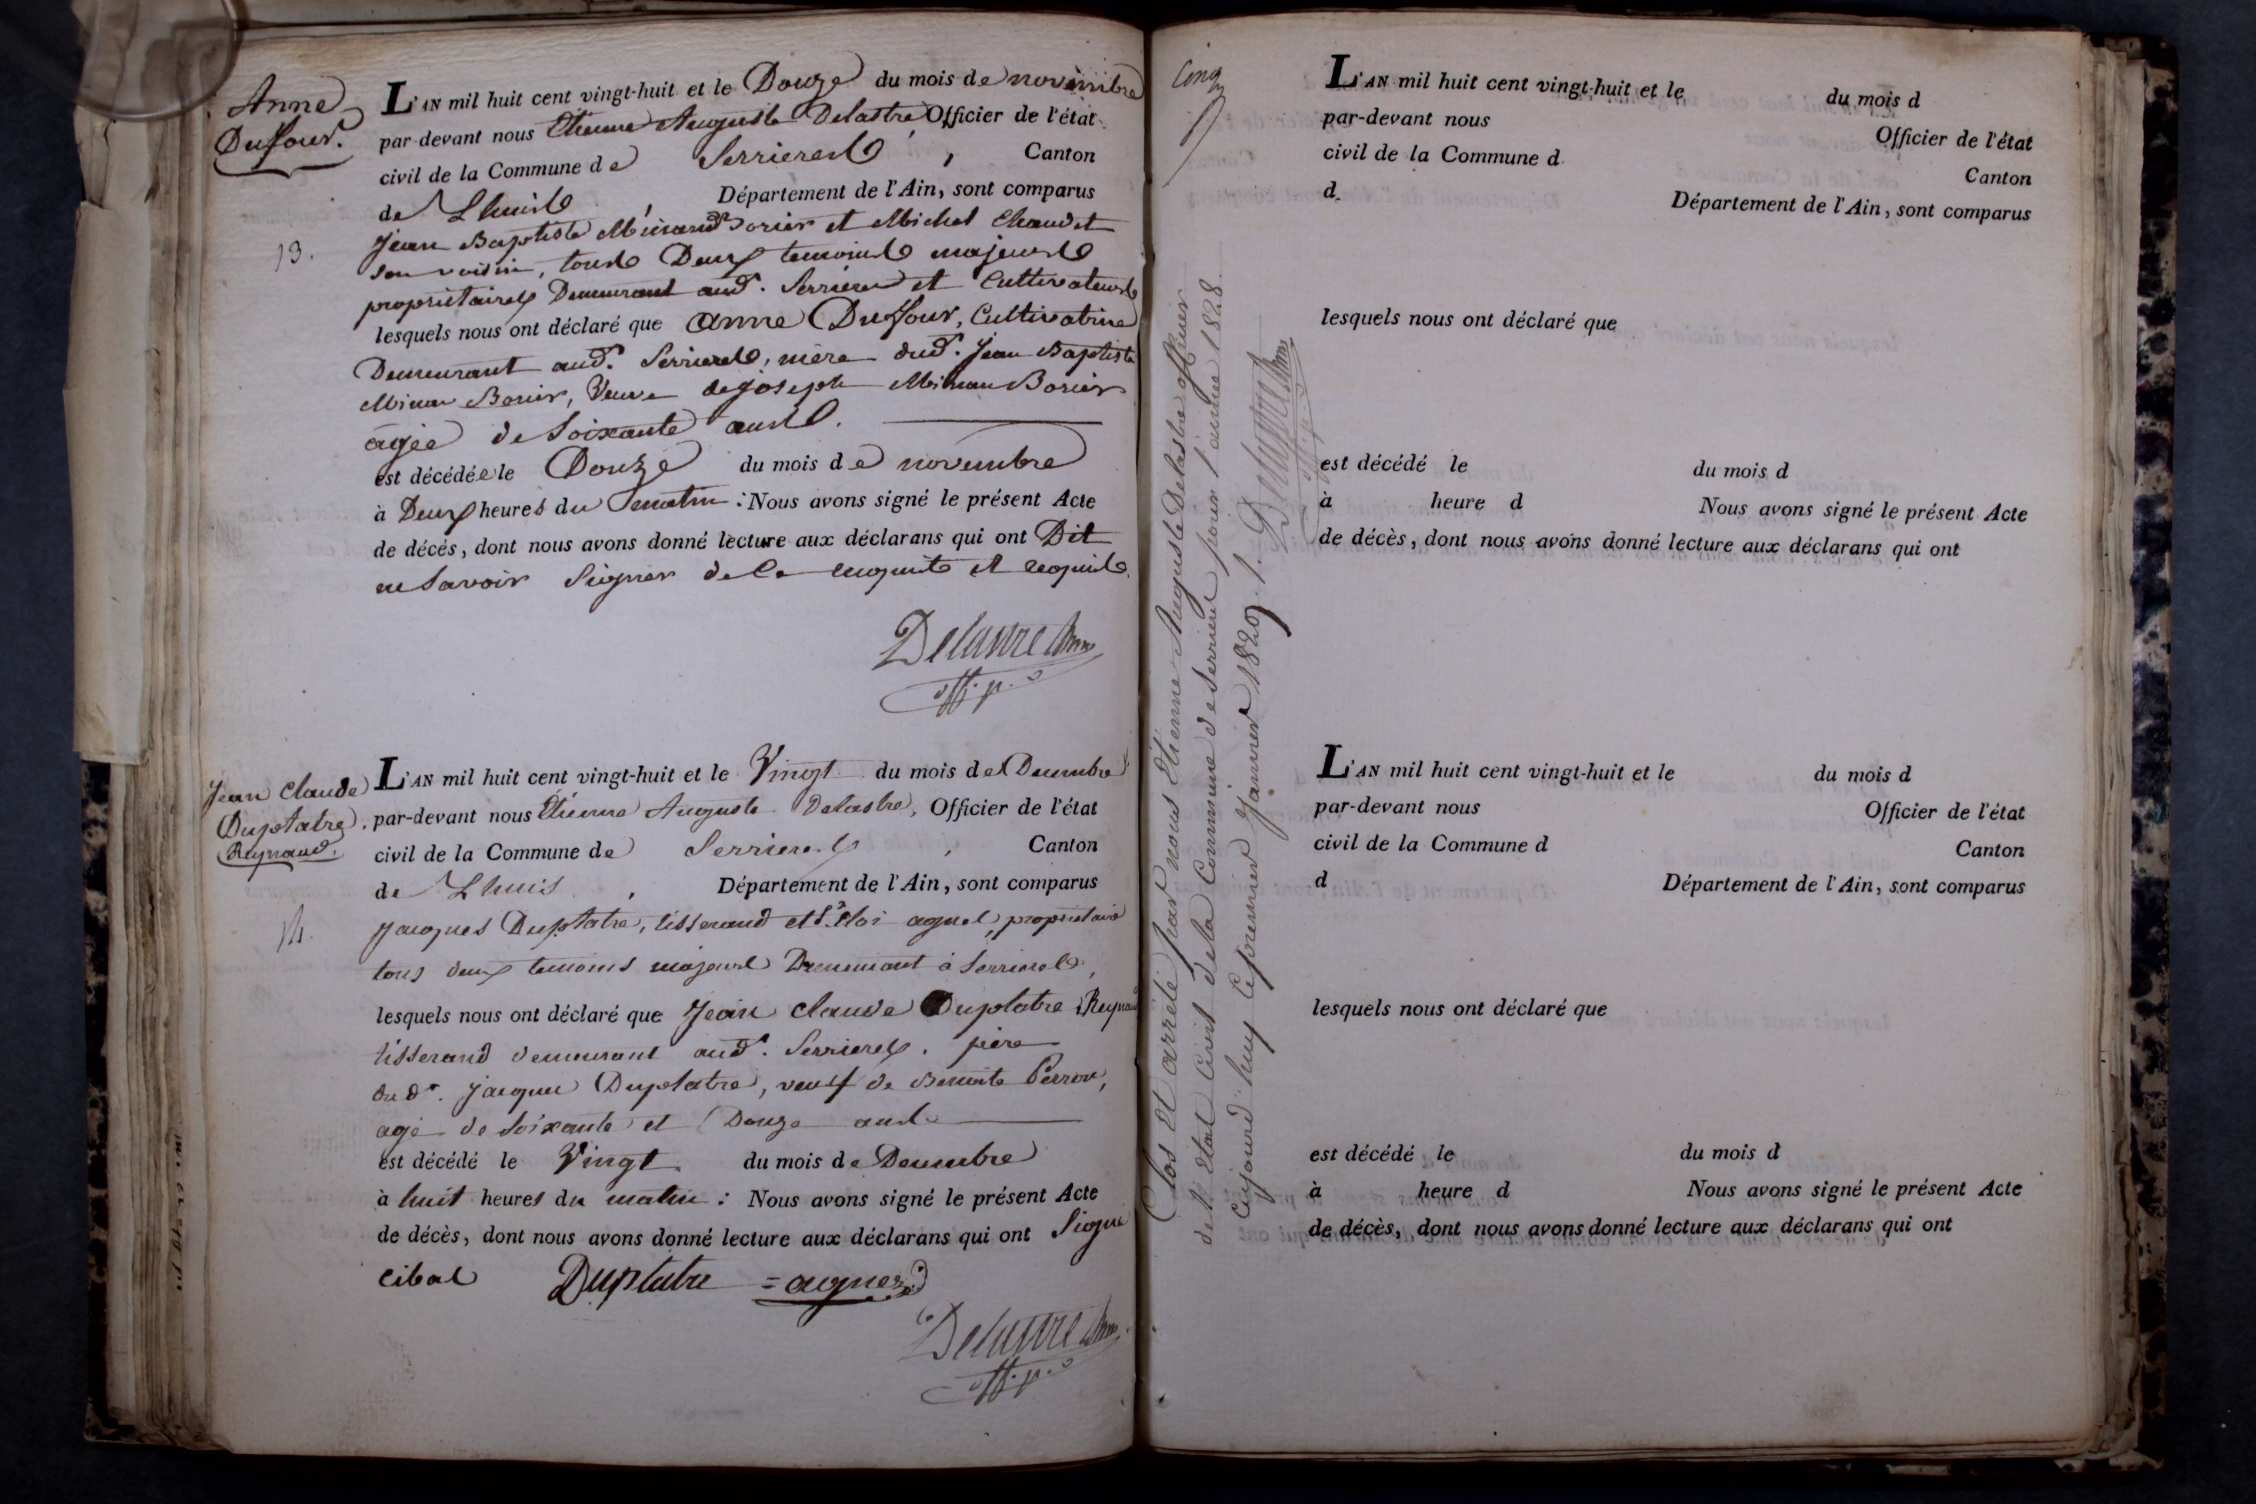 Anne
Duffour.
13.
L'AN mil huit cent vingt-huit et le Douze du mois de novembre
par-devant nous Etienne Auguste Delastre Officier de l'état
civil de la Commune de Serrieres, Canton
de Lhuis, Département de l'Ain, sont comparus
Jean Baptiste Borier et Michel Chaudet
son voisin, tous Deux temoins majeurs
proprietaires Demeurant aud.t Serrieres et Cultivateurs
lesquels nous ont déclaré que Anne Duffour, Cultivatrice
Demeurant aud.t Serrieres, mère dud.t Jean Baptiste
Borier, Veuve de Joseph Borier
agée de Soixante ans.
est décédée le Douze du mois de novembre
à Deux heures du matin : Nous avons signé le présent Acte
de décès, dont nous avons donné lecture aux déclarans qui ont Dit
ne Savoir Signer de ce enquits et requits.
Delastre
off. p.
Jean Claude
Duplatre.
Reynaud.
14.
L'AN mil huit cent vingt-huit et le Vingt du mois de Decembre
par-devant nous Etienne Auguste Delastre, Officier de l'état
civil de la Commune de Serrieres, Canton
de Lhuis, Département de l'Ain, sont comparus
Jacques Duplatre, tisserand et agnel, proprietaire
tous deux temoins majeurs Demeurant à Serrieres,
lesquels nous ont déclaré que Jean Claude Duplatre Reynaud
tisserand demeurant aud.t Serrieres. père
du d.t Jacques Duplatre, veuf de Benoite Perron,
agé de Soixante et Douze ans
est décédé le Vingt du mois de Decembre
à huit heures du matin : Nous avons signé le présent Acte
de décès, dont nous avons donné lecture aux déclarans qui ont Signé
Duplatre = agnel
Delastre
off. p.
Cinq
Clos et arrêté par nous Etienne Auguste Delastre officier
de l'état Civil de la Commune de Serrieres pour l'année 1828.
Cejourd'huy le premier Janvier 1829. Delastre
off. p.
L'AN mil huit cent vingt-huit et le du mois d
par-devant nous Officier de l'état
civil de la Commune d Canton
d Département de l'Ain, sont comparus
lesquels nous ont déclaré que
est décédé le du mois d
à heure d Nous avons signé le présent Acte
de décès, dont nous avons donné lecture aux déclarans qui ont
L'AN mil huit cent vingt-huit et le du mois d
par-devant nous Officier de l'état
civil de la Commune d Canton
d Département de l'Ain, sont comparus
lesquels nous ont déclaré que
est décédé le du mois d
à heure d Nous avons signé le présent Acte
de décès, dont nous avons donné lecture aux déclarans qui ont